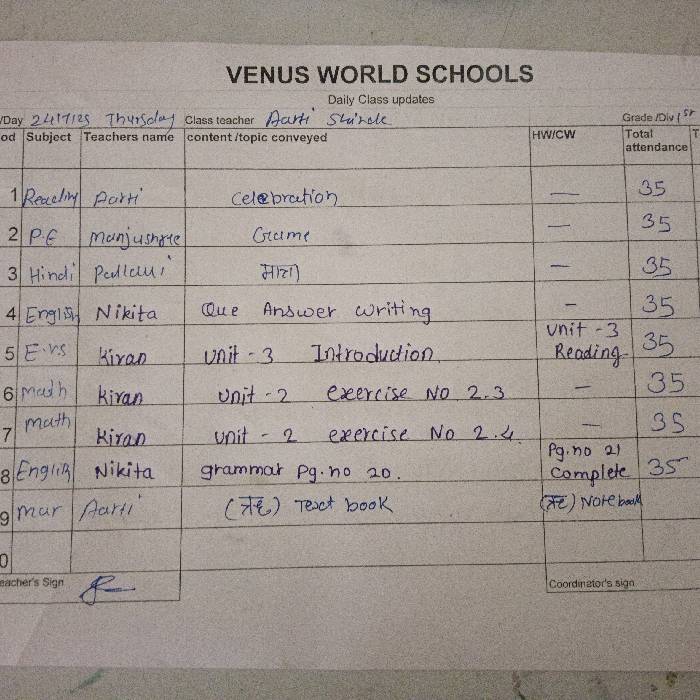 VENUS WORLD SCHOOLS
Daily Class updates
/Day 24/7/25 Thursday Class teacher Aarti Shinde Grade /Div 1st
od Subject Teachers name content /topic conveyed HW/CW Total attendance T
1 Reading Aarti Celebration — 35
2 P.E Manjushree Game — 35
3 Hindi Pallavi मात्रा — 35
4 English Nikita Que Answer writing - 35
5 E.vs Kiran Unit - 3 Introduction Unit - 3 Reading 35
6 math Kiran Unit - 2 exercise No 2.3 — 35
7 math Kiran unit - 2 exercise No 2.4 — 35
8 English Nikita grammar Pg. no 20. Pg. no 21 Complete 35
9 mar Aarti Text book Notebook
0
eacher's Sign Coordinator's sign